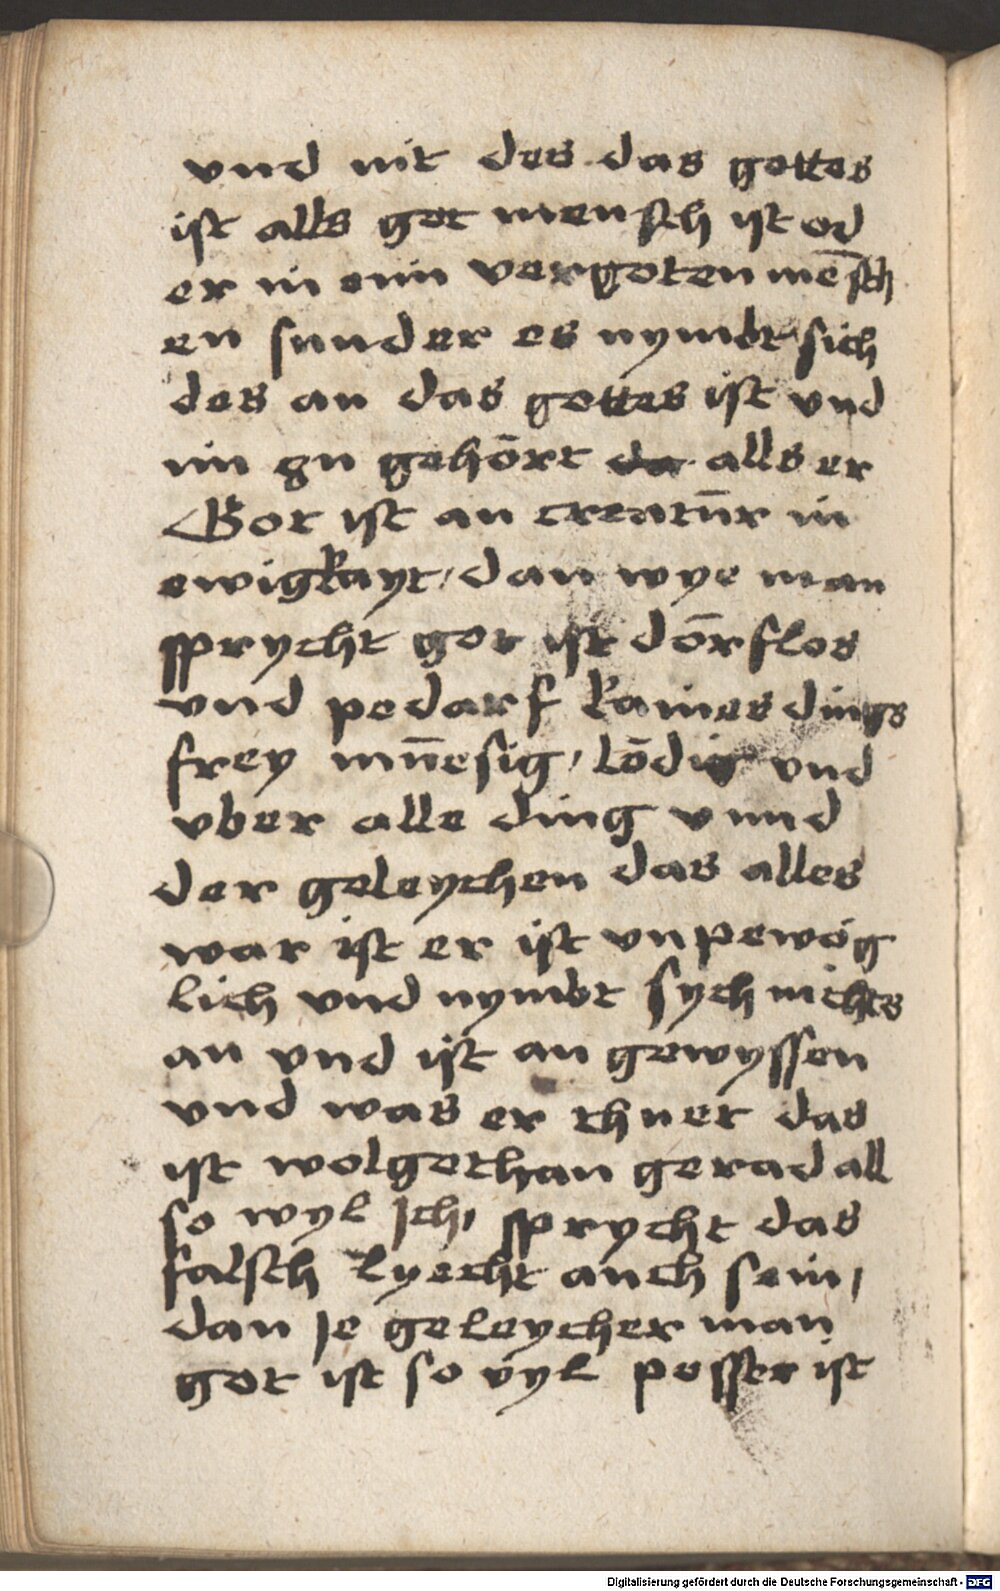 vnd nit des das gottes
ist alls got mensch ist od
er in eim vergoten mēsch
en sunder es nymbt sich
des an das gottes ist vnd
im zu gehört da alls er
Got ist an creatūr in
ewigkayt / dan wye man
sprycht got ist dörflos
vnd pedarf kaines dings
frey mu̅esig / lödig vnd
vber alle ding vnnd
der geleychen das alles
war ist er ist vnpewög
lich vnd nymbt sych nichts
an vnd ist an gewyssen
vnd was er thuet das
ist wolgethan gerad all
so wyl Jch / sprycht das
falsch lyecht auch sein /
dan Je geleycher man
got ist so vyl pesser ist
Digitalisierung gefördert durch die Deutsche Forschungsgemeinschaft - DFG